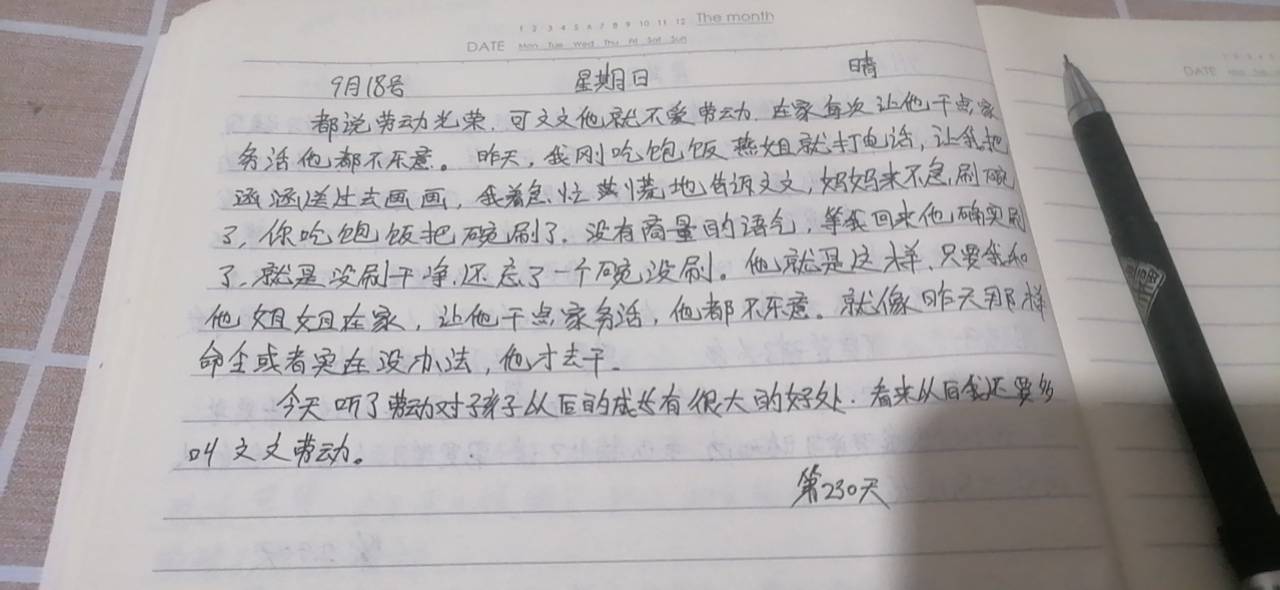 1 2 3 4 5 6 7 8 9 10 11 12 The month
DATE Mon Tue Wed Thu Fri Sat Sun
9月18号 星期日 晴
都说劳动光荣，可文文他就不爱劳动，在家每次让他干点家
务活他都不乐意。昨天，我刚吃饱饭燕姐就打电话，让我把
涵涵送过去画画，我着急忙慌慌地告诉文文，妈妈来不急刷碗
了，你吃饱饭把碗刷了。没有商量的语气，等我回来他确实刷
了，就是没刷干净，还忘了一个碗没刷。他就是这样，只要我和
他姐姐在家，让他干点家务活，他都不乐意。就像昨天那样
命令或者实在没办法，他才去干。
今天听了劳动对孩子以后的成长有很大的好处，看来以后我还要多
叫文文劳动。
第230天
DATE